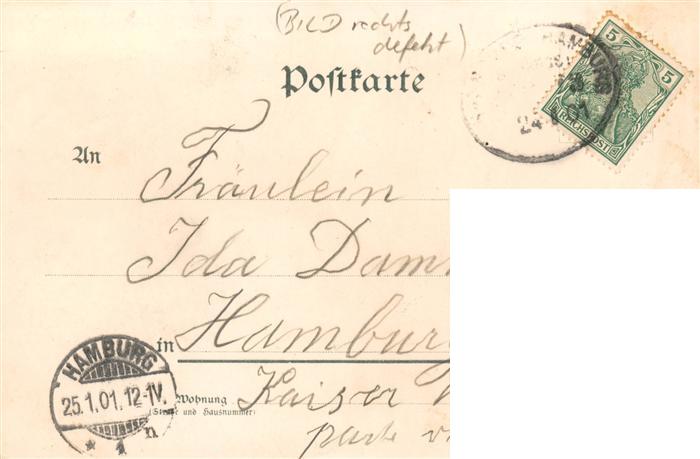 (BILD rechts
defekt)
HAMBURG
24
5 5
REICHSPOST
Postkarte
An
Fräulein
Ida Damm
in Hamburg
Wohnung
(Straße und Hausnummer)
Kaiser
parte
HAMBURG
25.1.01.12-1V.
* 1 n